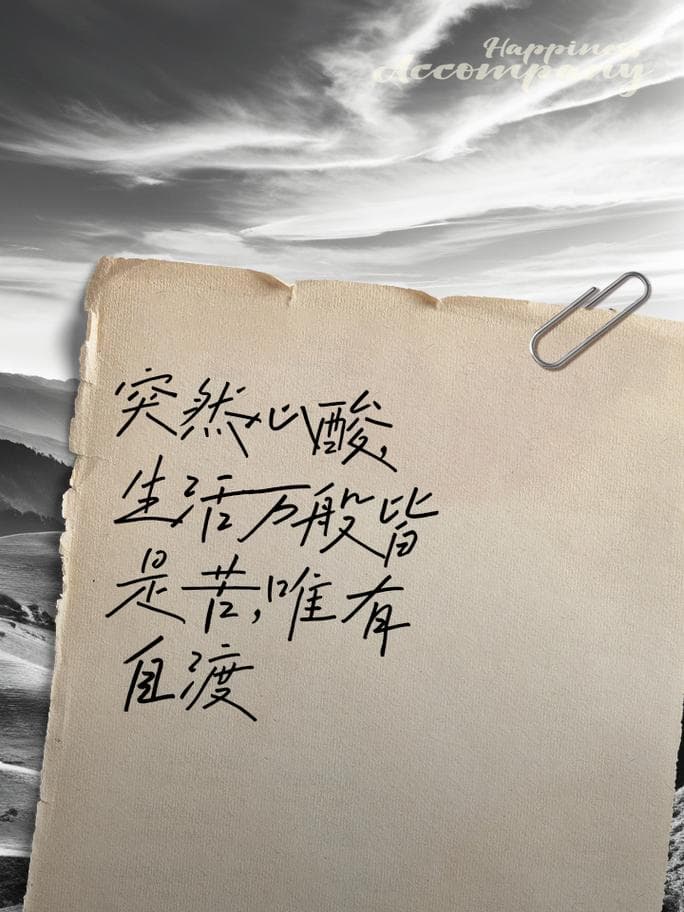 Happiness
Accompany
突然心酸,
生活万般皆
是苦,唯有
自渡